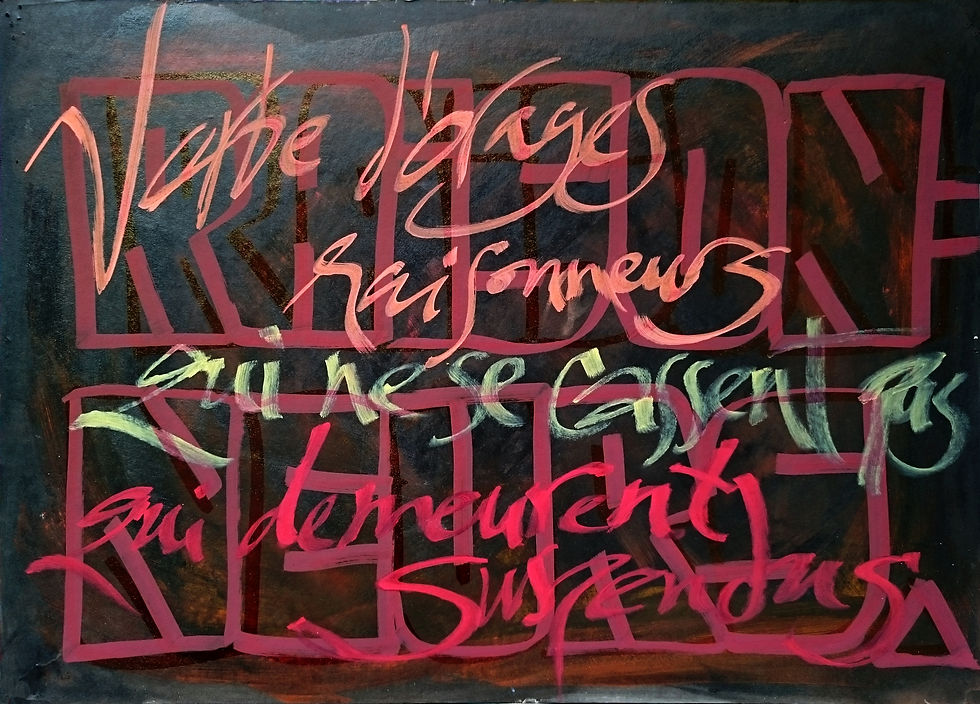 Vaste d'orages
raisonneurs
qui ne se cassent pas
qui demeurent
suspendus